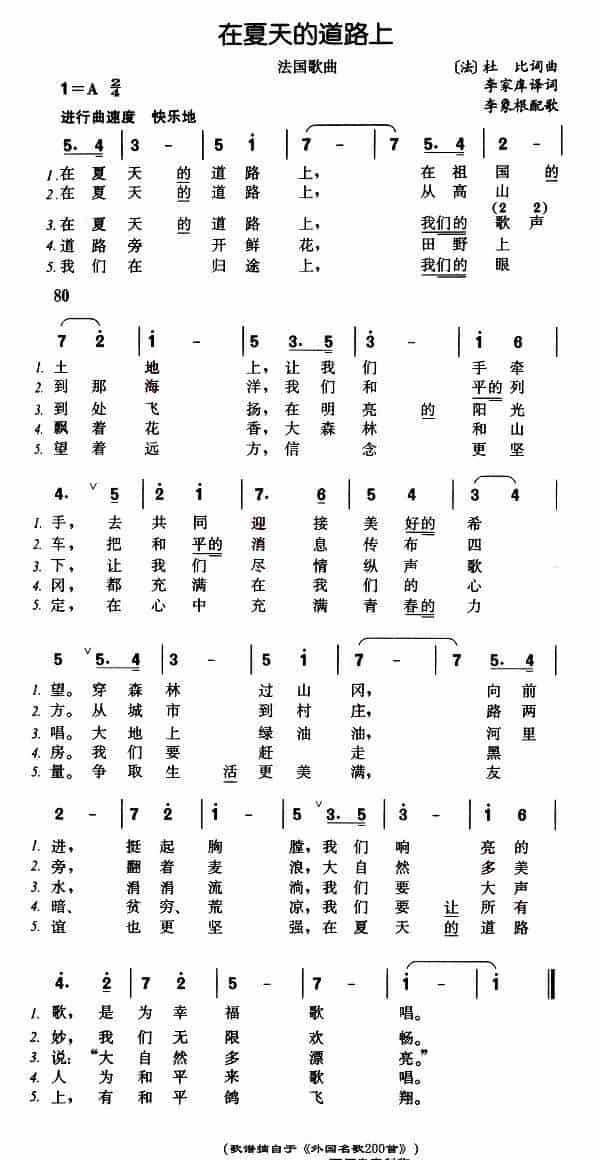 在夏天的道路上
法国歌曲
〔法〕杜 比词曲
1=A 2/4
李家庠译词
进行曲速度 快乐地
李象根配歌
5. 4 | 3 - | 5 1 | 7 - | 7 5. 4 | 2 - |
1.在夏天的道路上，在祖国的
2.在夏天的道路上，从高山
(2 2)
3.在夏天的道路上，我们的歌声
4.道路旁开鲜花，田野上
5.我们在归途上，我们的眼
80
7 2 | 1 - | 5 3. 5 | 3 - | 1 6 |
1.土地上，让我们手牵
2.到那海洋，我们和平的列
3.到处飞扬，在明亮的阳光
4.飘着花香，大森林和山
5.望着远方，信念更坚
4. ∨ 5 | 2 1 | 7. 6 | 5 - | 3 4 |
1.手，去共同迎接美好的希
2.车，把和平的消息传布四
3.下，让我们尽情纵声歌
4.冈，都充满在我们的心
5.定，在心中充满青春的力
5 ∨ 5. 4 | 3 - | 5 1 | 7 - | 7 5. 4 |
1.望。穿森林过山冈，向前
2.方。从城市到村庄，路两
3.唱。大地上绿油油，河里
4.房。我们要赶走黑
5.量。争取生活更美满，友
2 - | 7 2 | 1 - | 5 ∨ 3. 5 | 3 - | 1 6 |
1.进，挺起胸膛，我们响亮的
2.旁，翻着麦浪，大自然多美
3.水，涓涓流淌，我们要大声
4.暗、贫穷、荒凉，我们要让所有
5.谊也更坚强，在夏天的道路
4. 2 | 7 2 | 5 - | 7 - | 1 - | 1 ‖
1.歌，是为幸福歌唱。
2.妙，我们无限欢畅。
3.说：“大自然多漂亮。”
4.人为和平来歌唱。
5.上，有和平鸽飞翔。
(歌谱摘自于《外国名歌200首》)